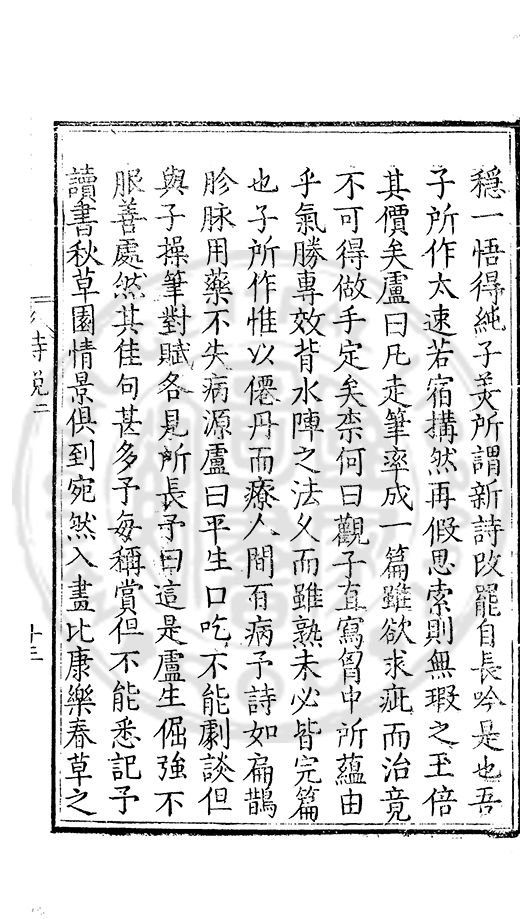 穩一悟得純子美所謂新詩改罷自長吟是也吾
子所作太速若宿搆然再假思索則無瑕之玉倍
其價矣盧曰凡走筆率成一篇雖欲求疵而治竟
不可得做手定矣柰何曰觀子直寫胷中所蘊由
乎氣勝專效背水陣之法久而雖熟未必皆完篇
也子所作惟以僊丹而療人間百病予詩如扁鵲
胗脉用藥不失病源盧曰平生口吃不能劇談但
與子操筆對賦各見所長予曰這是盧生倔強不
服善處然其佳句甚多予每稱賞但不能悉記予
讀書秋草園情景俱到宛然入畫比康樂春草之
詩說二
十三